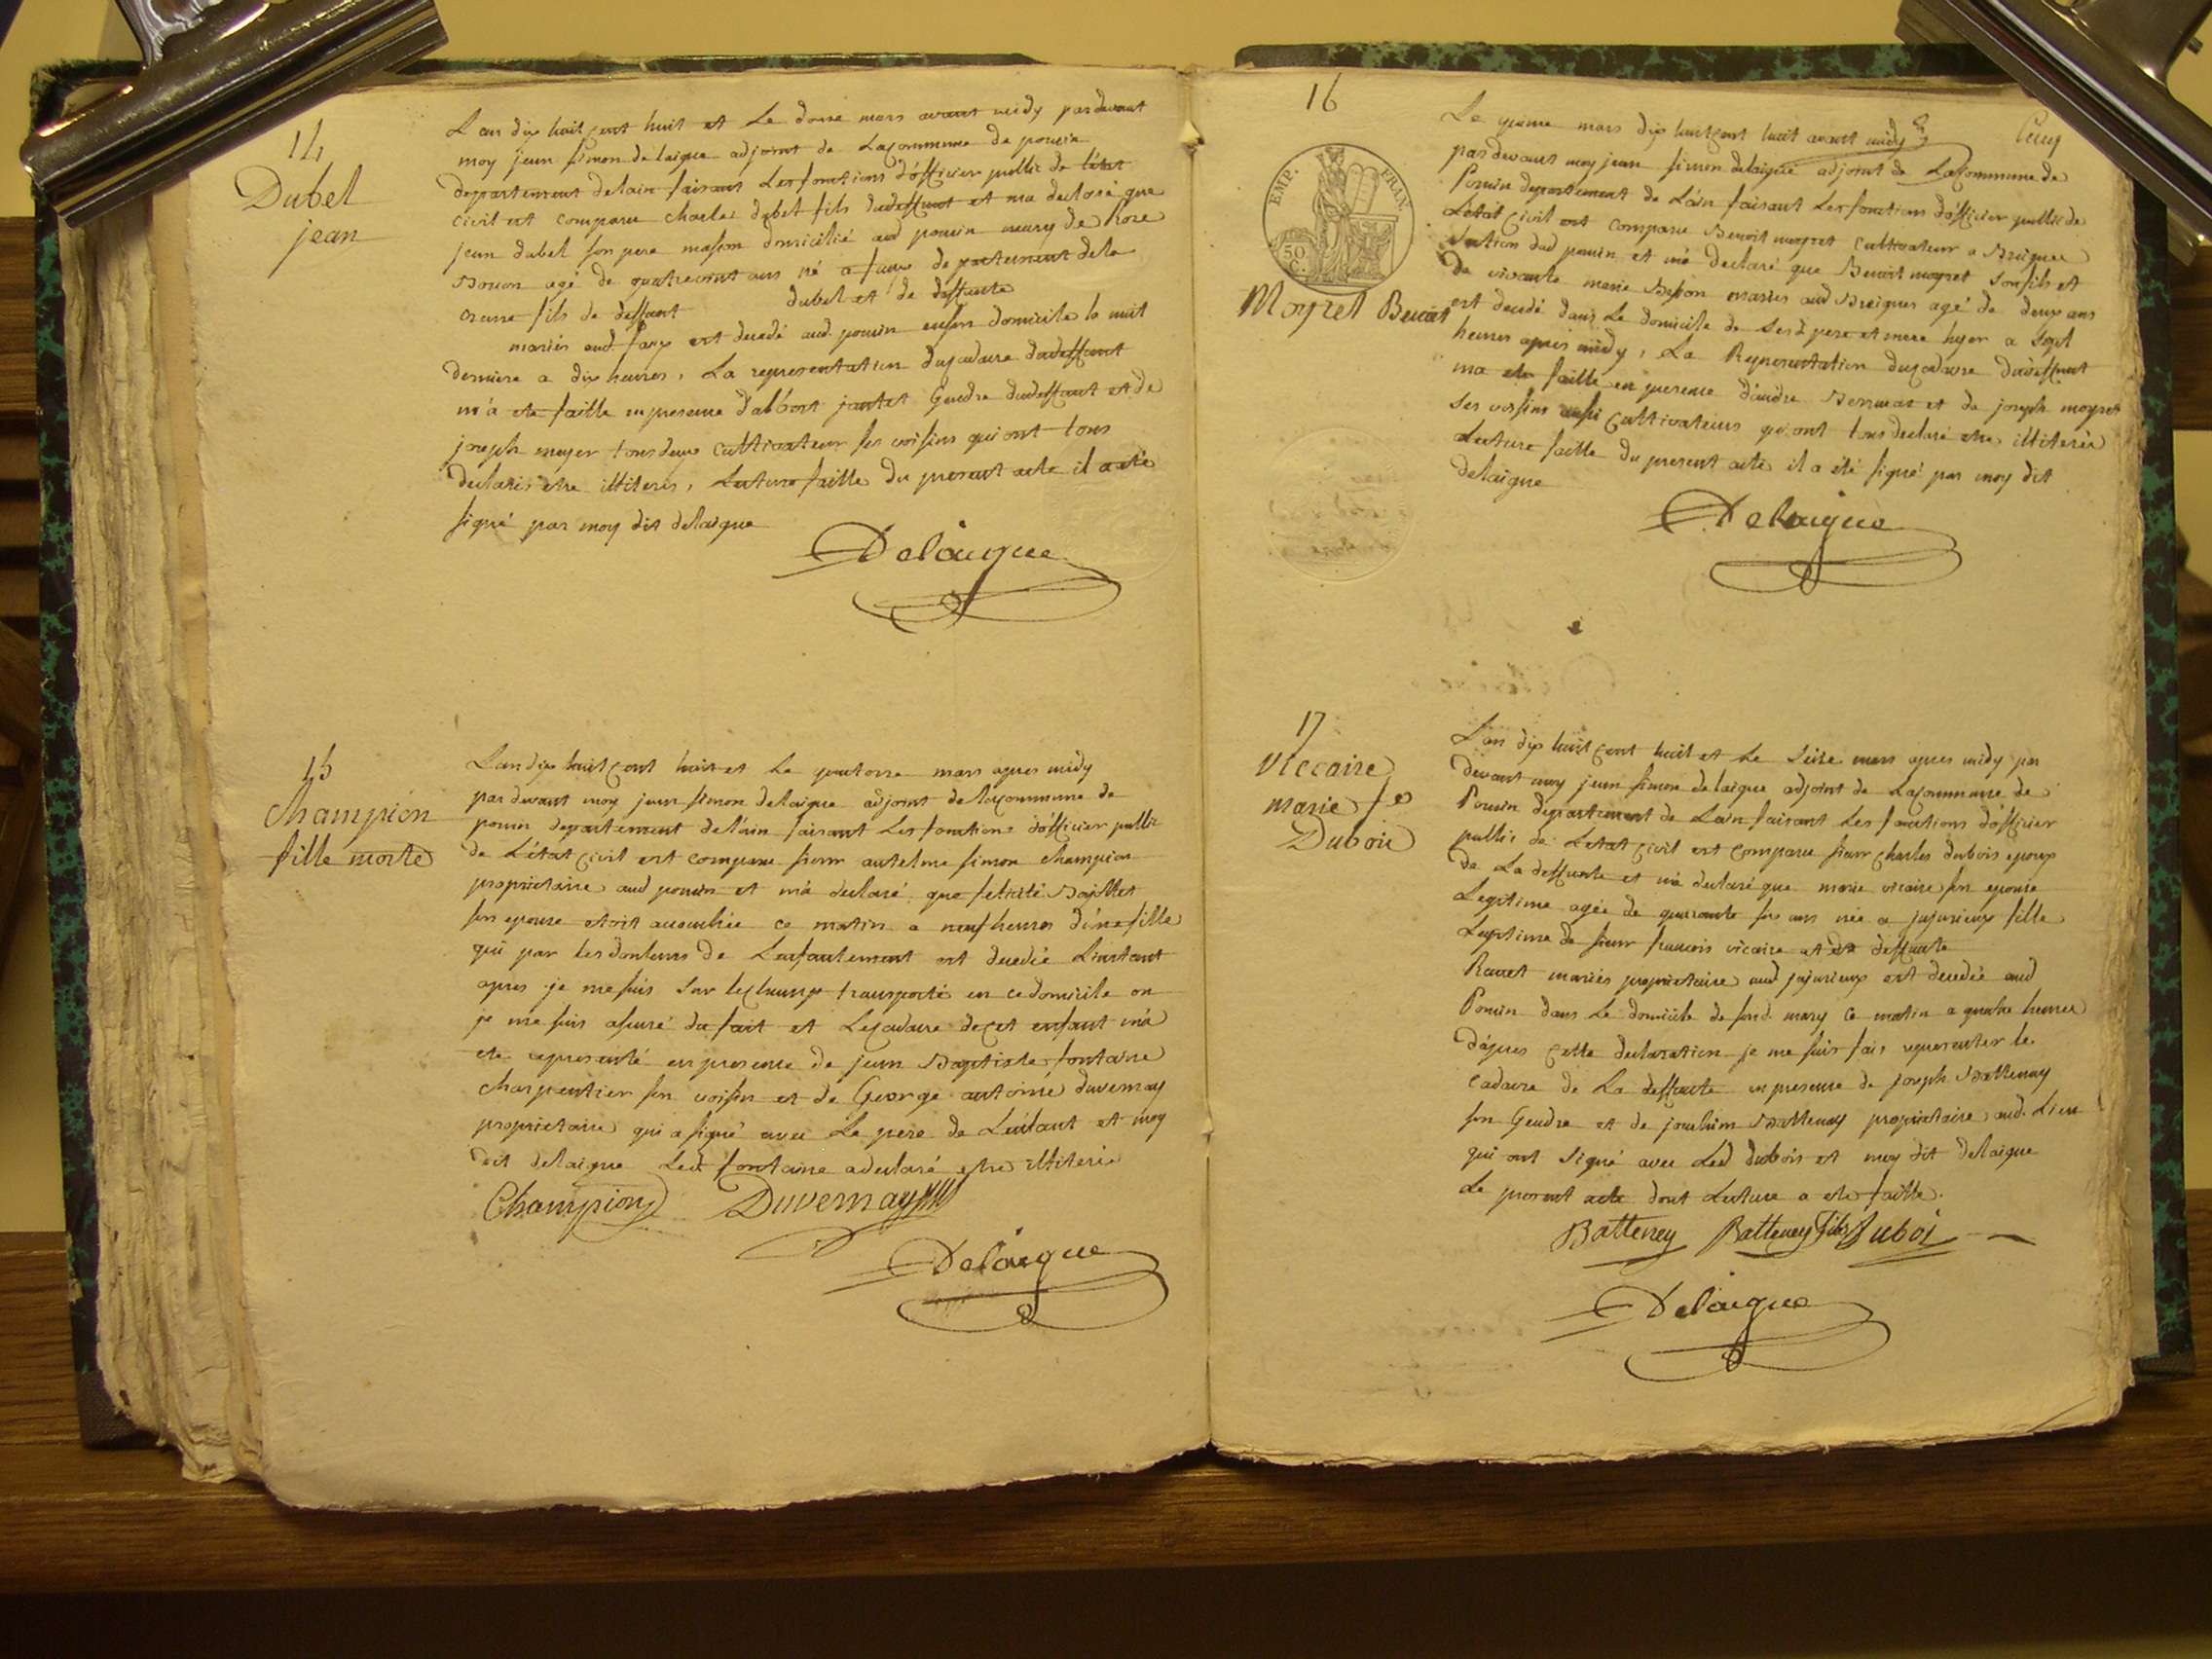 14
Dubel
jean
L'an dix huit cent huit et le douze mars avant midy pardevant
moy jean simon delaigue adjoint de la commune de poncin
departement de lain faisant les fonctions d'officier public de l'état
civil est comparu charles dubel fils dudeffunt et m'a declaré que
jean dubel son pere masson domicilié aud poncin mary de
agé de quatrevint ans né a de partement de la
fils de deffunt dubel et de deffunte
mariés aud. est decedé aud. poncin en son domicile la nuit
derniere a dix heures, La representation du cadavre dudeffunt
m'a ete faitte en presence d'albert jantet Gendre dudeffunt et de
joseph moyer tous deux cultivateur ses voisins qui ont tous
declarés etre illiterés, Lecture faitte du present acte il a eté
signé par moy dit delaigue
Delaigue
15
Champion
fille morte
L'an dix huit cent huit et le quatorze mars apres midy
par devant moy jean simon delaigue adjoint de la commune de
poncin departement de l'ain faisant les fonctions d'officier public
de L'état civil est comparu sieur antelme simon champion
proprietaire aud poncin et m'a declaré que felicité
son epouse etoit accouchée ce matin a neuf heures d'une fille
qui par les douleurs de Lenfantement est decedée L'instant
apres je me suis sur le champ transporté en ce domicile ou
je me suis assuré du fait et Le cadavre de cet enfant m'a
ete representé en presence de jean Baptiste fontaine
charpentier son voisin et de George antoine duvernay
proprietaire qui a signé avec Le pere de L'enfant et moy
dit delaigue Led fontaine a declaré etre illiteré
Champion Duvernay
Delaigue
16
Le quinze mars dix huit cent huit avant midy
par devant moy jean simon delaigue adjoint de La Commune de
Poncin departement de L'ain faisant Les fonctions d'officier public de
L'état civil est comparu Benoit moyret cultivateur a
section dud poncin et m'a declaré que Benoit moyret son fils et
de vivante marie mariés aud agé de deux ans
est decedé dans Le domicile de sesd pere et mere hyer a sept
heures apres midy, La Representation du cadavre dudeffunt
m'a ete faitte en presence d'andre et de joseph moyret
ses voisins aussi cultivateurs qui ont tous declaré etre illiterés
Lecture faitte du present acte il a été signé par moy dit
delaigue
EMP. FRAN.
50
C.
Moyret Benoit
Delaigue
17
Viccaire
marie fe
Dubois
L'an dix huit cent huit et Le seize mars apres midy par
devant moy jean simon delaigue adjoint de La Commune de
Poncin departement de L'ain faisant Les fonctions d'officier
public de L'etat civil est comparu sieur charles dubois epoux
de La deffunte et m'a declaré que marie vicaire son epouse
Legitime agée de quarante six ans née a jujurieux fille
Legitime de sieur francois vicaire et de deffunte
Ravet mariés proprietaire aud jujurieux est decedée aud
Poncin dans Le domicile de sond. mary ce matin a quatre heures
d'apres cette declaration je me suis fait representer le
cadavre de La deffunte en presence de joseph Batteney
son Gendre et de joachim Batteney proprietaire aud. Lieu
qui ont signé avec Led dubois et moy dit delaigue
Le present acte dont Lecture a ete faitte.
Batteney Batteney fils Duboi
Delaigue